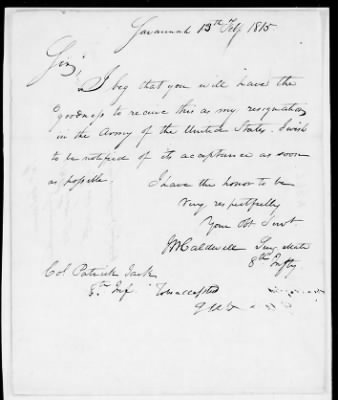 Savannah 13th Feby 1815
Sir,
I beg that you will have the
goodness to receive this as my resignation
in the Army of the United States. I wish
to be notified of its acceptance as soon
as possible.
I have the honor to be
Very respectfully
Your Obt Servt.
Caldwell
8th Infty
Col Patrick Jack
8th Inf